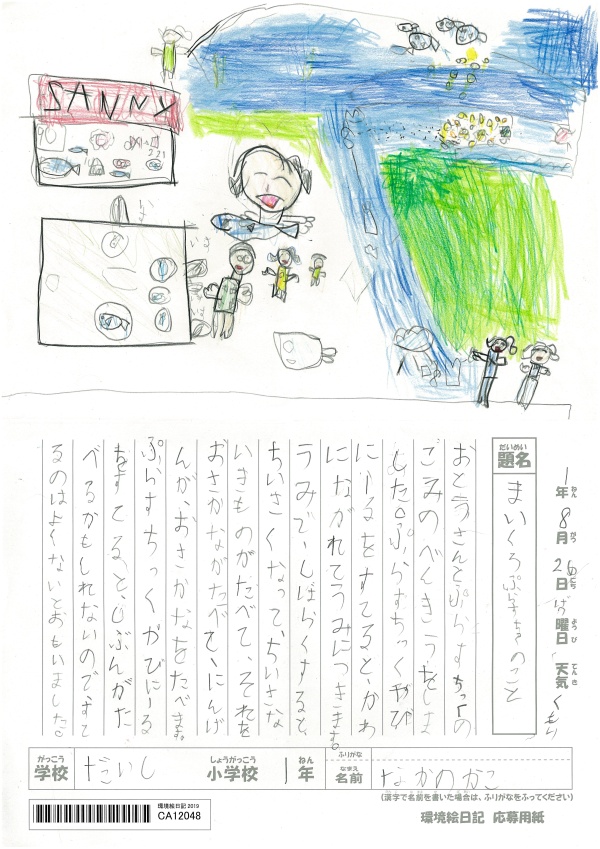 SANNY
だいめい
題名
まいくろぷらすちっくのこと
1年 8月 26日 げつ曜日 天気 くもり
ねん がつ にち ようび てんき
おとうさんとぷらすちっくの
ごみのべんきょうをしま
した。ぷらすちっくやび
にーるをすてると、かわ
にながれてうみにつきます。
うみで、しばらくすると、
ちいさくなって、ちいさな
いきものがたべて、それを
おさかながたべて、にんげ
んが、おさかなをたべます。
ぷらすちっくかびにーる
をすてると、じぶんがた
べるかもしれないのですて
るのはよくないとおもいました。
がっこう
学校
だいし
しょうがっこう
小学校
1
ねん
年
ふりがな
なまえ
名前
なかのかこ
(漢字で名前を書いた場合は、ふりがなをふってください)
環境絵日記 2019
CA12048
環境絵日記 応募用紙